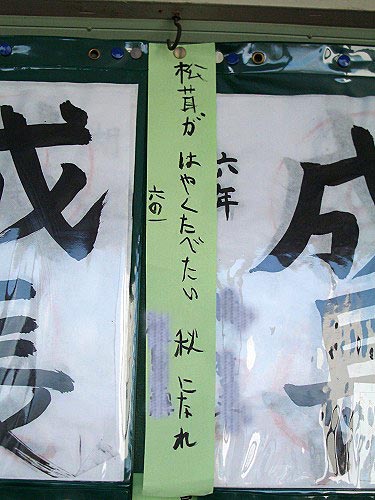 成長
六年
松茸が はやくたべたい 秋になれ
六の一
成長